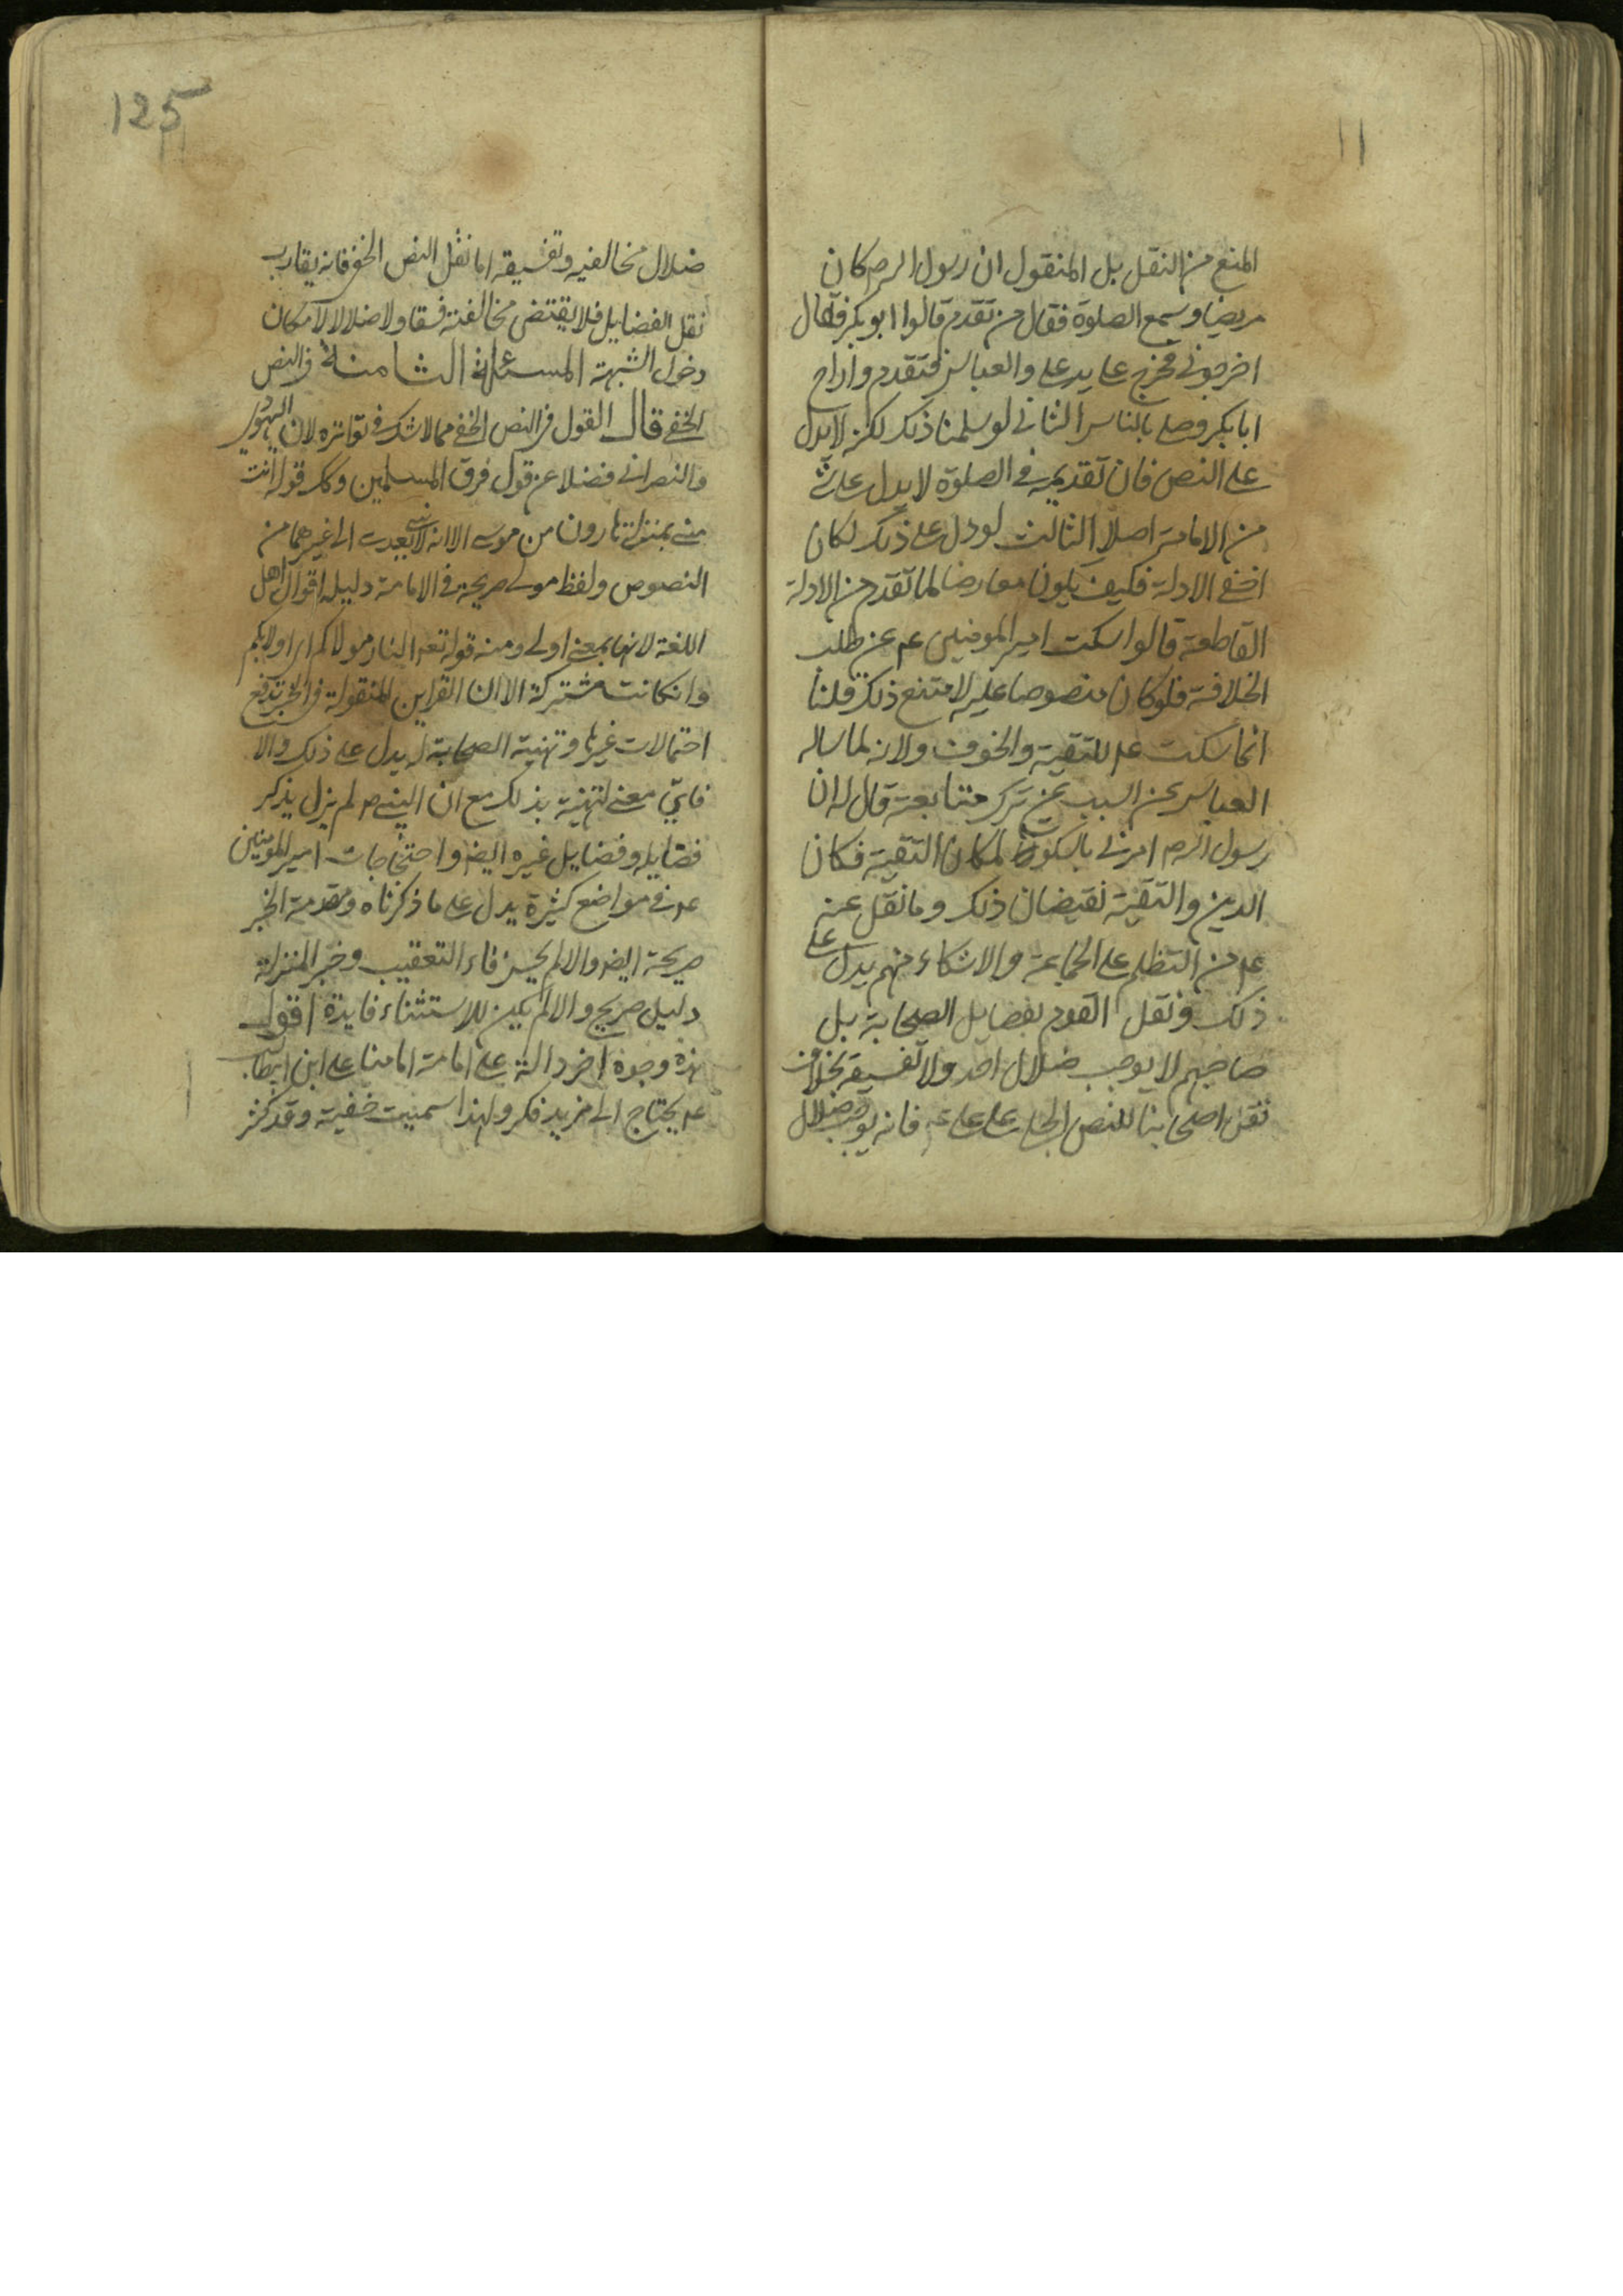 11
المنع من النقل بل المنقول ان رسول الله ص كان
مريضا وسمع الصلوة فقال من تقدم قالوا ابو بكر فقال
اخرجوني فخرج على يد علي والعباس فتقدم وازاح
ابا بكر وصلى بالناس الثاني لو سلمنا ذلك لكن لا يدل
على النص فان تقديمه في الصلوة لا يدل على شئ
من الامامة اصلا الثالث لو دل على ذلك لكان
اخفى الادلة فكيف يكون معارضا لما تقدم من الادلة
القاطعة قالوا سكت امير المومنين عم عن طلب
الخلافة فلو كان منصوصا عليه لامتنع ذلك قلنا
انما سكت عم للتقية والخوف ولانه لما ساله
العباس عن السبب عن ترك متابعة قال له ان
رسول الله ص امرني بالسكوت لمكان التقية فكان
الدين والتقية نقيضان ذلك وما نقل عنه
عم من التظلم على الجماعة والاشكاء منهم يدل على
ذلك ونقل القوم لفضايل الصحابة بل
صاحبهم لا يوجب ضلال احد ولا تفسيقه بخلاف
نقل اصحابنا للنص الجلي على علي ع فانه يوجب ضلال
125
ضلال مخالفيه وتفسيقه اما نقل النص الخفي فانه يقارب
نقل الفضايل فلا يقتضي مخالفته فسقا ولا ضلالا لامكان
دخول الشبهة المسئلة الثامنة في النص
الخفي قال القول في النص الخفي مما لا شك في تواتره لان اليهود
والنصراني فضلا عن قول فرق المسلمين وكر قوله انت
مني بمنزلة هارون من موسى الا انه لا نبي بعدي الى غيرهما من
النصوص ولفظ مولى صريحة في الامامة دليله اقوال اهل
اللغة لانها بمعنى اولى ومنه قوله تعم النار مولاكم اي اولى بكم
وان كانت مشتركة الا ان القراين المنقولة في الخبر تدفع
احتمالات غيرها وتهنية الصحابة له يدل على ذلك والا
فاي معنى لتهنية بذلك مع ان النبي ص لم يزل يذكر
فضايله وفضايل غيره ايضا واحتجاجات امير المومنين
عم في مواضع كثيرة يدل على ما ذكرناه ومقدمة الخبر
صريحة ايضا والا لم يحسن فاء التعقيب وخبر المنزلة
دليل صريح والا لم يكن للاستثناء فايدة اقول
هذه وجوه اخر دالة على امامة امامنا علي ابن ابيطالب
عم يحتاج الى مزيد فكر ولهذا سميت خفية وقد كثر